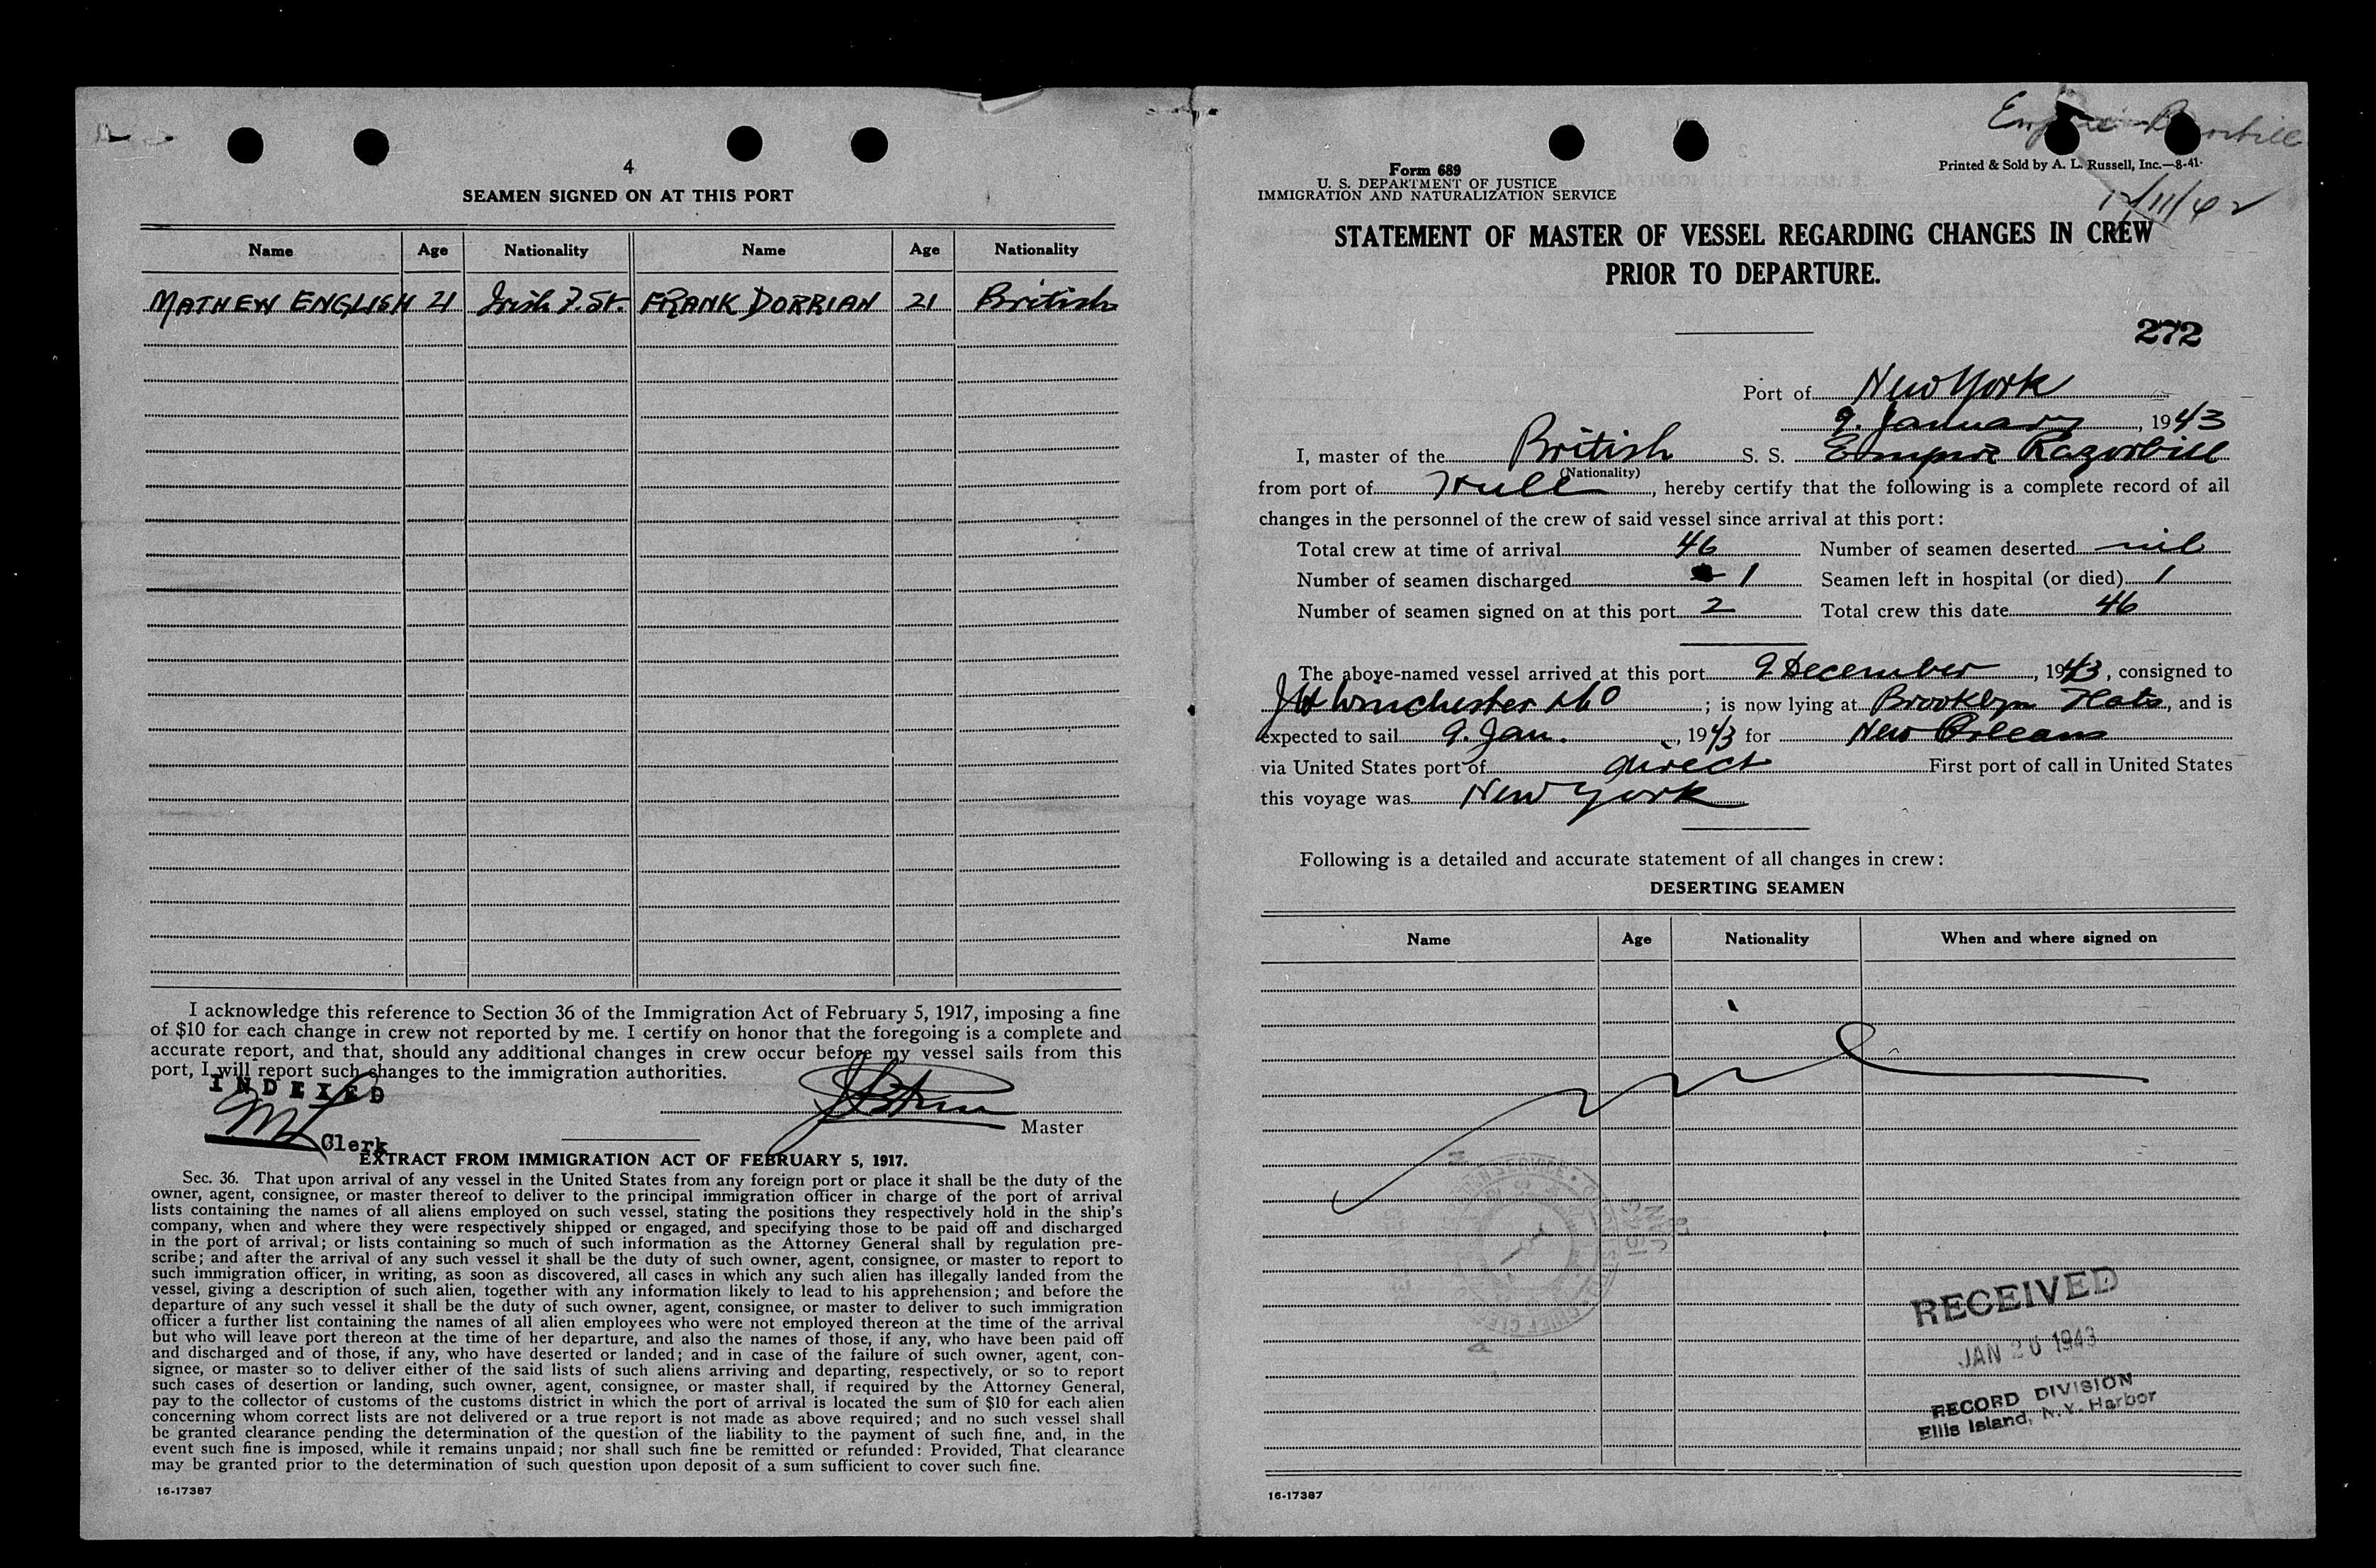 4
SEAMEN SIGNED ON AT THIS PORT
Name Age Nationality Name Age Nationality
MATHEW ENGLISH 21 Irish F. St. FRANK DORRIAN 21 British
I acknowledge this reference to Section 36 of the Immigration Act of February 5, 1917, imposing a fine
of $10 for each change in crew not reported by me. I certify on honor that the foregoing is a complete and
accurate report, and that, should any additional changes in crew occur before my vessel sails from this
port, I will report such changes to the immigration authorities.
INDEXED
Master
Clerk
EXTRACT FROM IMMIGRATION ACT OF FEBRUARY 5, 1917.
Sec. 36. That upon arrival of any vessel in the United States from any foreign port or place it shall be the duty of the
owner, agent, consignee, or master thereof to deliver to the principal immigration officer in charge of the port of arrival
lists containing the names of all aliens employed on such vessel, stating the positions they respectively hold in the ship's
company, when and where they were respectively shipped or engaged, and specifying those to be paid off and discharged
in the port of arrival; or lists containing so much of such information as the Attorney General shall by regulation pre-
scribe; and after the arrival of any such vessel it shall be the duty of such owner, agent, consignee, or master to report to
such immigration officer, in writing, as soon as discovered, all cases in which any such alien has illegally landed from the
vessel, giving a description of such alien, together with any information likely to lead to his apprehension; and before the
departure of any such vessel it shall be the duty of such owner, agent, consignee, or master to deliver to such immigration
officer a further list containing the names of all alien employees who were not employed thereon at the time of the arrival
but who will leave port thereon at the time of her departure, and also the names of those, if any, who have been paid off
and discharged and of those, if any, who have deserted or landed; and in case of the failure of such owner, agent, con-
signee, or master so to deliver either of the said lists of such aliens arriving and departing, respectively, or so to report
such cases of desertion or landing, such owner, agent, consignee, or master shall, if required by the Attorney General,
pay to the collector of customs of the customs district in which the port of arrival is located the sum of $10 for each alien
concerning whom correct lists are not delivered or a true report is not made as above required; and no such vessel shall
be granted clearance pending the determination of the question of the liability to the payment of such fine, and, in the
event such fine is imposed, while it remains unpaid; nor shall such fine be remitted or refunded: Provided, That clearance
may be granted prior to the determination of such question upon deposit of a sum sufficient to cover such fine.
16-17387
Empire Razorbill
Form 689
U. S. DEPARTMENT OF JUSTICE
IMMIGRATION AND NATURALIZATION SERVICE
Printed & Sold by A. L. Russell, Inc.—8-41.
12/11/42
STATEMENT OF MASTER OF VESSEL REGARDING CHANGES IN CREW
PRIOR TO DEPARTURE.
272
Port of New York
9. January, 1943
I, master of the British S. S. Empire Razorbill
(Nationality)
from port of Hull, hereby certify that the following is a complete record of all
changes in the personnel of the crew of said vessel since arrival at this port:
Total crew at time of arrival 46 Number of seamen deserted nil
Number of seamen discharged 1 Seamen left in hospital (or died) 1
Number of seamen signed on at this port 2 Total crew this date 46
The above-named vessel arrived at this port 9 December, 1943, consigned to
J H Winchester & Co; is now lying at Brooklyn Flats, and is
expected to sail 9. Jan., 1943 for New Orleans
via United States port of direct First port of call in United States
this voyage was New York
Following is a detailed and accurate statement of all changes in crew:
DESERTING SEAMEN
Name Age Nationality When and where signed on
nil
RECEIVED
JAN 20 1943
RECORD DIVISION
Ellis Island, N.Y. Harbor
16-17387